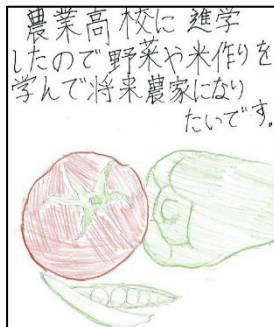 農業高校に進学
したので野菜や米作りを
学んで将来農家になり
たいです。